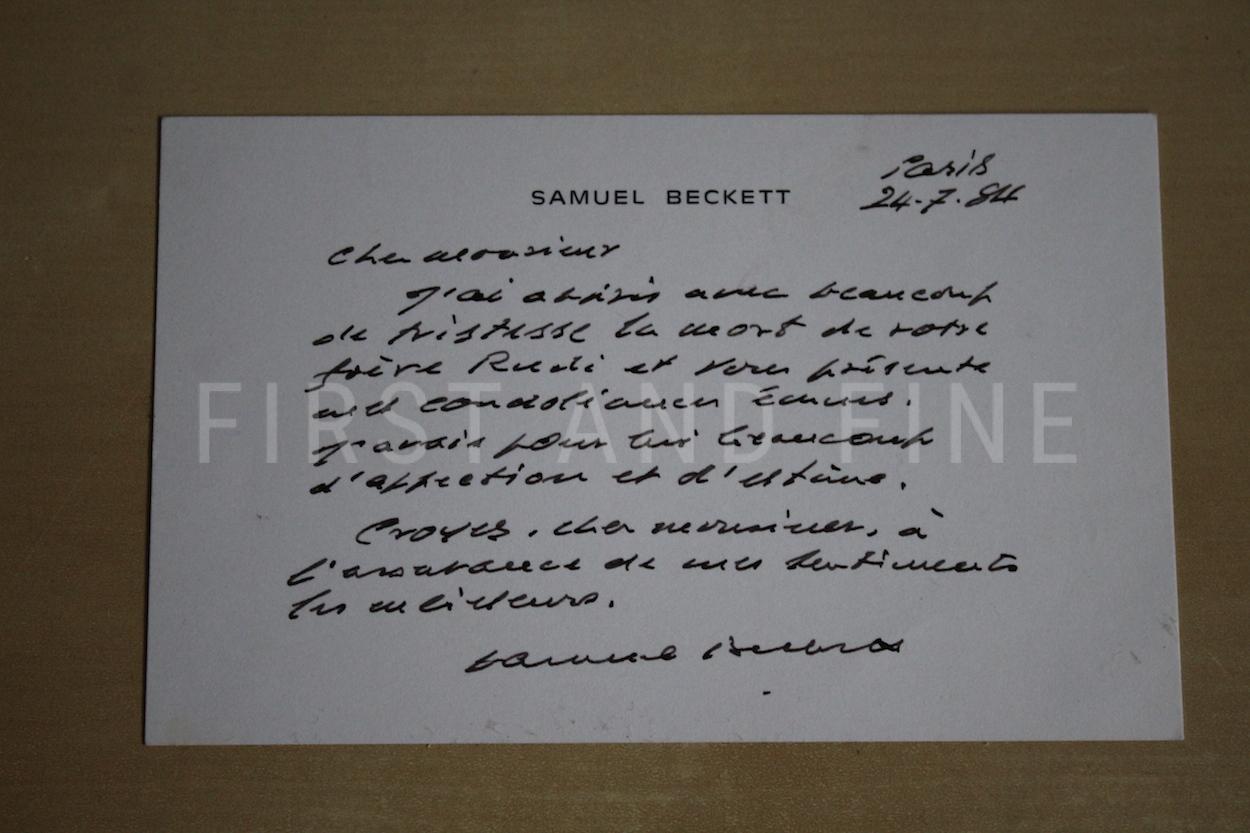 Paris
SAMUEL BECKETT
24-7-84
Cher monsieur
J'ai appris avec beaucoup
de tristesse la mort de votre
frère Rudi et vous présente
mes condoléances émues.
J'avais pour lui beaucoup
d'affection et d'estime.
Croyez, cher monsieur, à
l'assurance de mes sentiments
les meilleurs.
Samuel Beckett
FIRST AND FINE